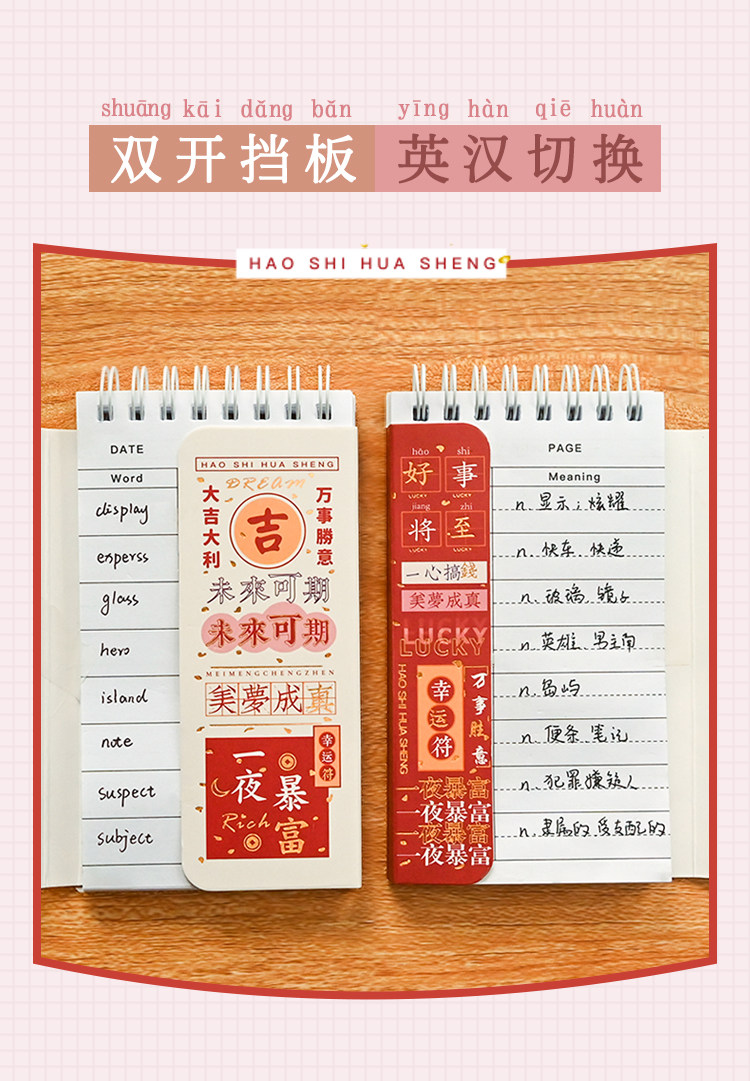 shuāng kāi dǎng bǎn yīng hàn qiē huàn
双开挡板 英汉切换
HAO SHI HUA SHENG
DATE
Word
display
esperss
glass
hero
island
note
suspect
subject
HAO SHI HUA SHENG
DREAM
大吉大利
吉
万事勝意
未來可期
未來可期
MEIMENGCHENGZHEN
美夢成真
幸运符
一夜暴富
Rich
hāo shi
好事
LUCKY LUCKY
jiang zhi
将至
LUCKY LUCKY
一心搞錢
美夢成真
LUCKY
LUCKY
HAO SHI HUA SHENG
幸运符
万事胜意
一夜暴富
一夜暴富
一夜暴富
一夜暴富
PAGE
Meaning
n. 显示；炫耀
n. 快车、快递
n. 玻璃、镜子
n. 英雄、男主角
n. 岛屿
n. 便条 笔记
n. 犯罪嫌疑人
n. 隶属的、受支配的